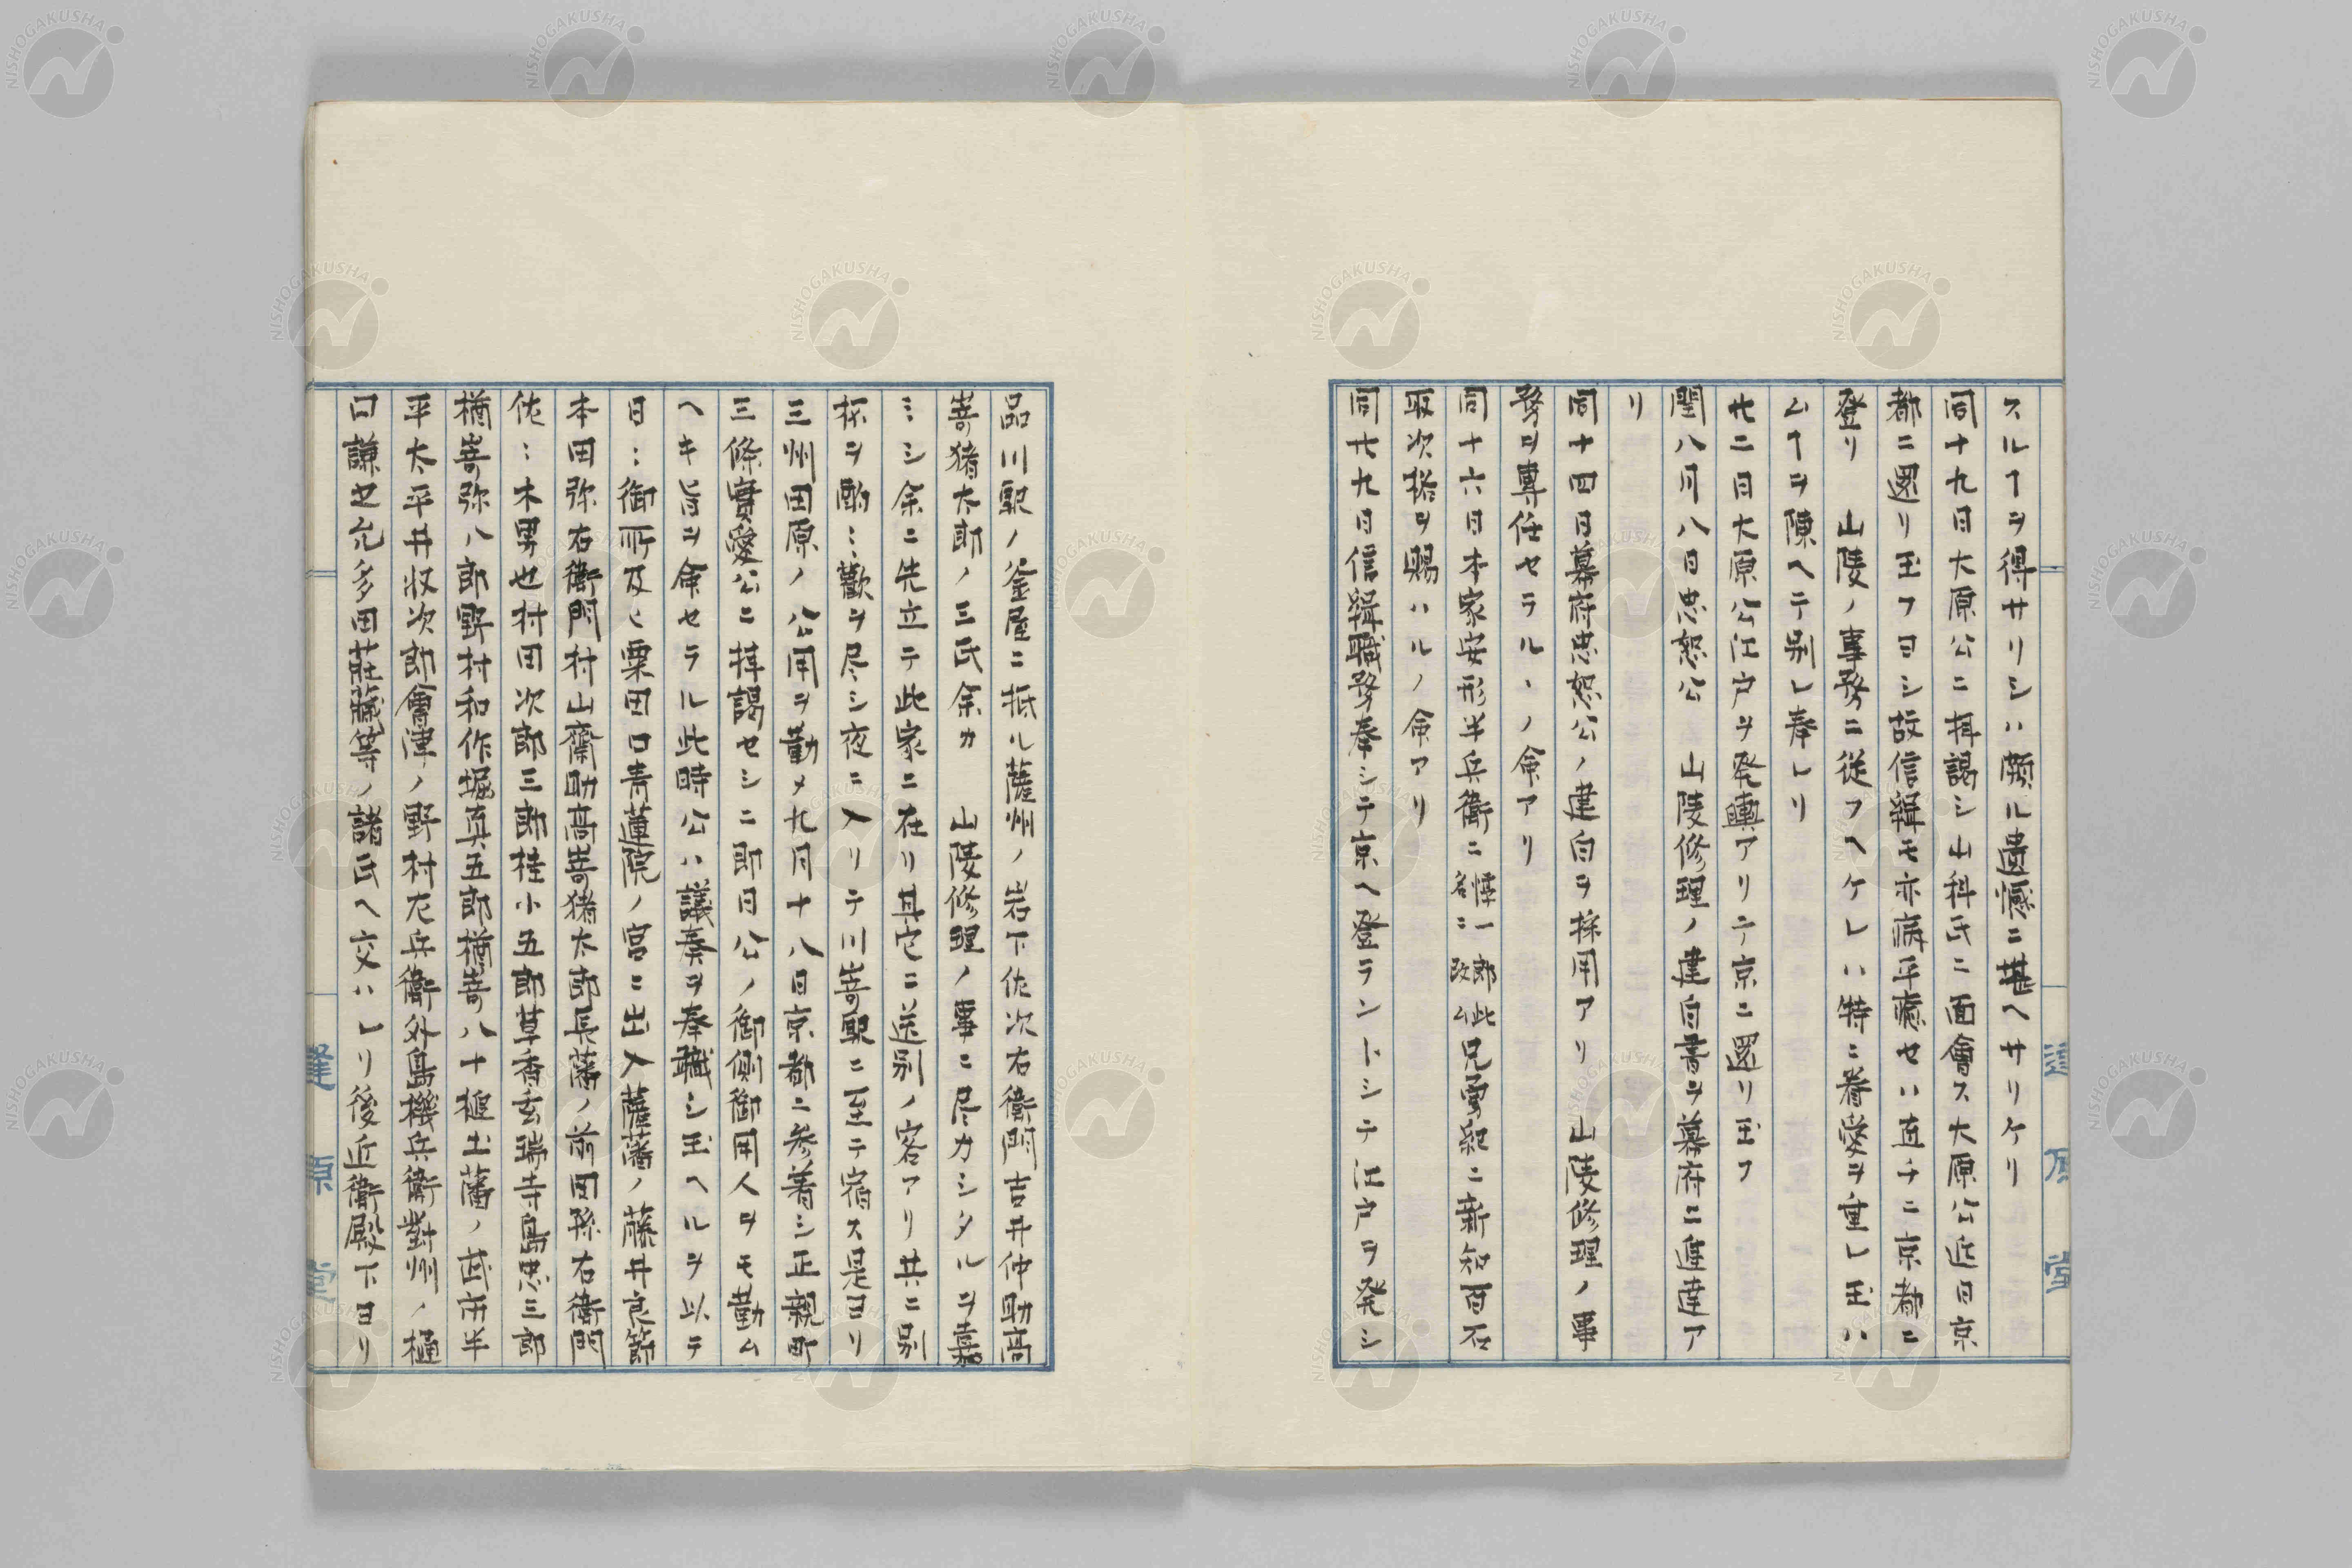 スルヿヲ得サリシハ頗ル遺憾ニ堪ヘサリケリ
同十九日大原公ニ拝謁シ山科氏ニ面會ス大原公近日京
都ニ還リ玉フヨシ故信緝モ亦病平癒セハ直チニ京都ニ
登リ 山陵ノ事務ニ従フヘケレハ特ニ眷愛ヲ重レ玉ハ
ムヿヲ陳ヘテ別レ奉レリ
廿二日大原公江戸ヲ発輿アリテ京ニ還リ玉フ
閏八月八日忠恕公 山陵修理ノ建白書ヲ幕府ニ進達ア
リ
同十四日幕府忠恕公ノ建白ヲ採用アリ 山陵修理ノ事
務ヲ専任セラルヽノ命アリ
同十六日本家安形半兵衛ニ惇一郎此名ニ改ム兄勇紀ニ新知百石
取次格ヲ賜ハルノ命アリ
同廿九日信緝職務奉シテ京ヘ登ラントシテ江戸ヲ発シ
品川駅ノ釜屋ニ抵ル薩州ノ岩下佐次右衛門吉井仲助高
嵜猪太郎ノ三氏余カ 山陵修理ノ事ニ尽力シタルヲ嘉
ミシ余ニ先立テ此家ニ在リ其它ニ送別ノ客アリ共ニ別
杯ヲ酌ミ歓ヲ尽シ夜ニ入リテ川嵜駅ニ至テ宿ス是ヨリ
三州田原ノ公用ヲ勤メ九月十八日京都ニ参着シ正親町
三條實愛公ニ拝謁セシニ即日公ノ御側御用人ヲモ勤ム
ヘキ旨ヲ命セラル此時公ハ議奏ヲ奉職シ玉ヘルヲ以テ
日々御所及ヒ粟田口青蓮院ノ宮ニ出入薩藩ノ藤井良節
本田弥右衛門村山齋助高嵜猪太郎長藩ノ前田孫右衛門
佐々木男也村田次郎三郎桂小五郎草香玄瑞寺島忠三郎
楢嵜弥八郎野村和作堀真五郎楢嵜八十槌土藩ノ武市半
平太平井収次郎會津ノ野村左兵衛外島機兵衛對州ノ樋
口謙之允多田荘蔵等ノ諸氏ヘ交ハレリ後近衛殿下ヨリ
逢原堂
NISHOGAKUSHA